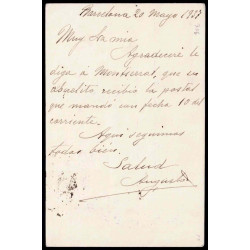 Barcelona 20 Mayo 1937
Muy Sra mia
Agradeceré le
diga á Montserrat, que su
abuelito recibió la postal
que mandó con fecha 10 del
corriente.
Aquí seguimos
todos bien.
Salud
Augusto